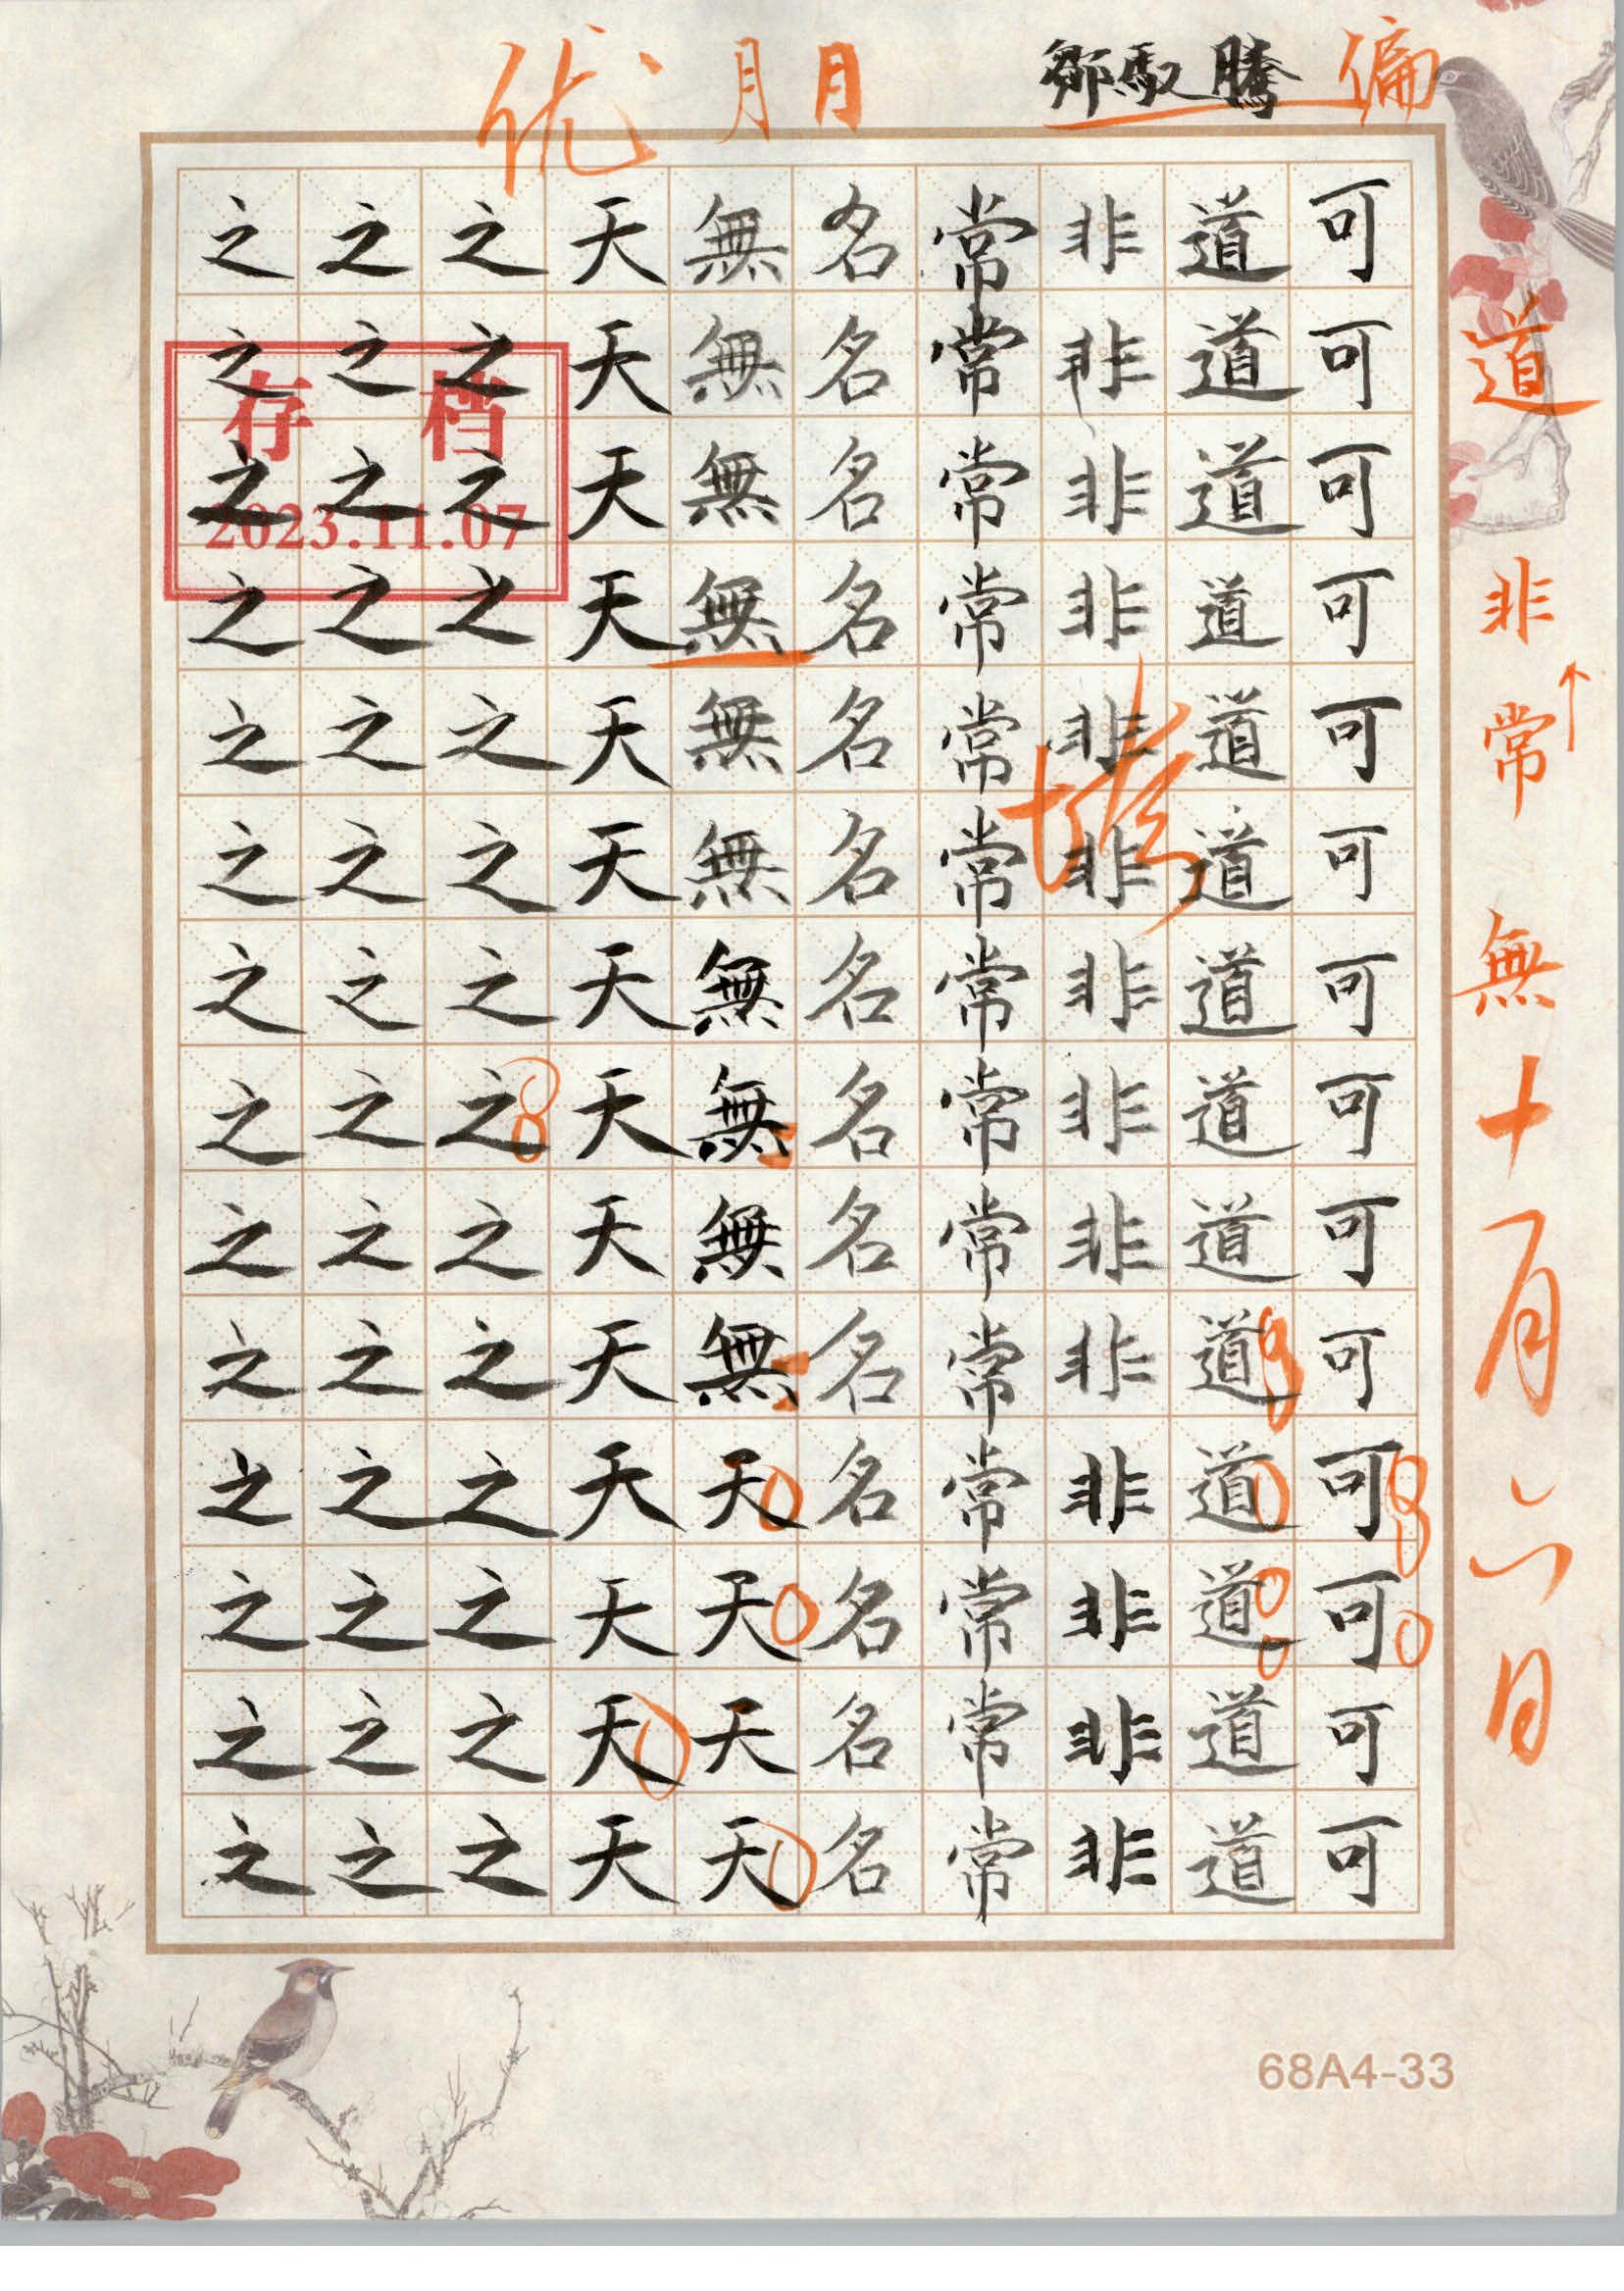 鄒馭騰
偏
优
道
非
常
無
十月六日
可可可可可可可可可可可可可可
道道道道道道道道道道道道道道
非非非非非非非非非非非非非非
常常常常常常常常常常常常常常
名名名名名名名名名名名名名名
無無無無無無無無無無天天天天
天天天天天天天天天天天天天天
之之之之之之之之之之之之之之
之之之之之之之之之之之之之之
之之之之之之之之之之之之之之
存档
2023.11.07
68A4-33